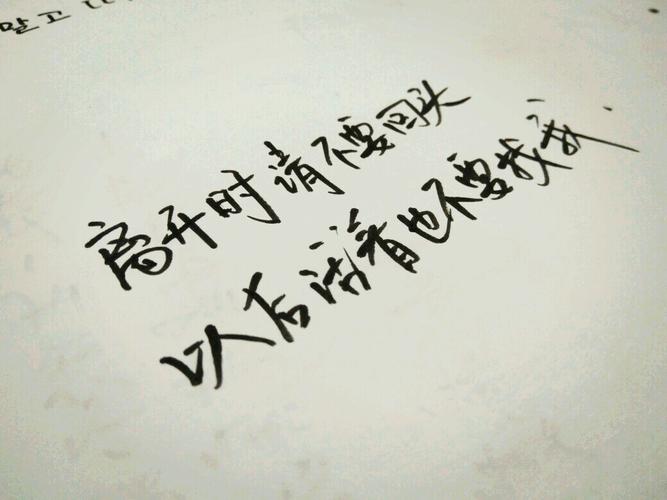 말고
离开时请不要回头
以后活着也不要找我.